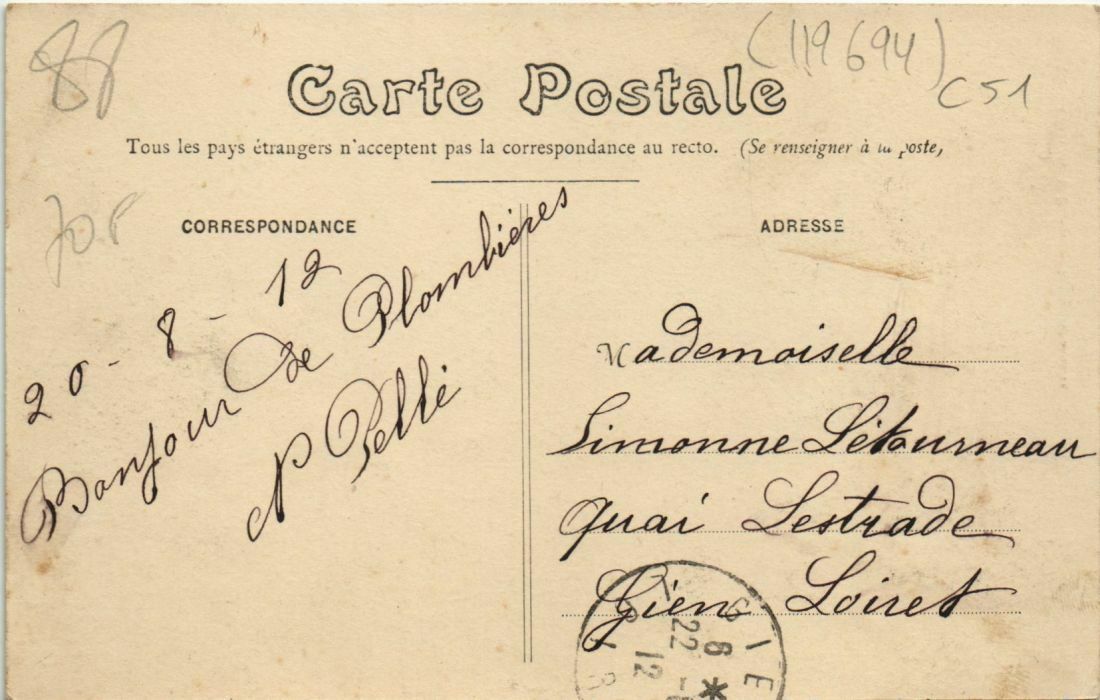 88
(119694)
C51
Carte Postale
Tous les pays étrangers n'acceptent pas la correspondance au recto. (Se renseigner à la poste)
CORRESPONDANCE
20 - 8 - 12
Bonjour de Plombières
N Pellé
ADRESSE
Mademoiselle
Simonne Létourneau
quai Lestrade
Gien Loiret
GIE
22 - 8
12